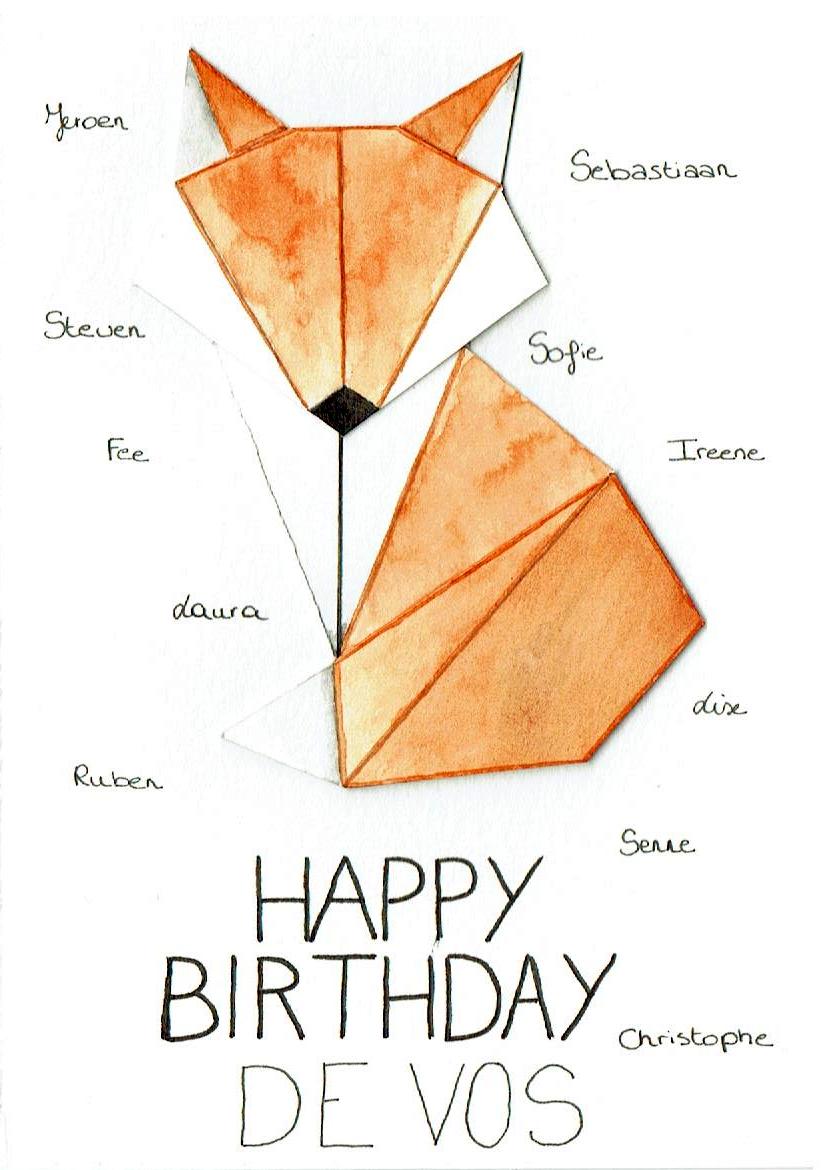 Jeroen
Sebastiaan
Steven
Sofie
Fee
Ireene
Laura
Lise
Ruben
Senne
HAPPY
BIRTHDAY
Christophe
DE VOS